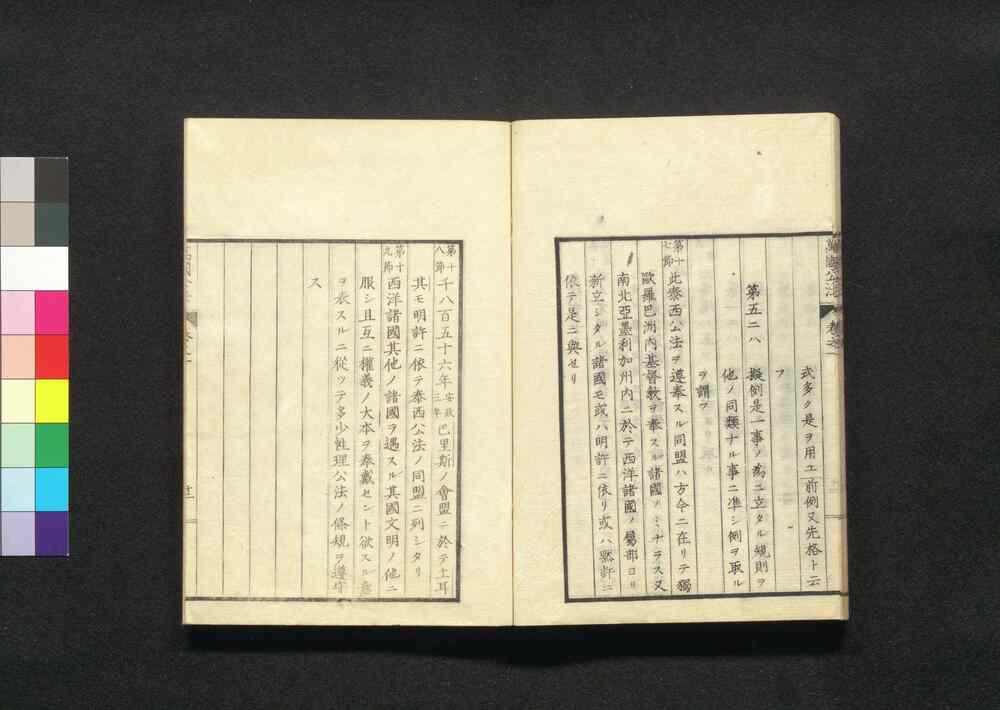 萬國公法 卷之一
式多ク是ヲ用ユ前例又先格ト云
フ
第五二八 擬例是一事ノ為ニ立タル規則ヲ
他ノ同類ナル事ニ準シ例ヲ取ル
ヲ謂フ
第十七節 此泰西公法ヲ遵奉スル同盟ハ方今ニ在リテ獨
歐羅巴洲内基督教ヲ奉スル諸國ノミナラス又
南北亞墨利加州内ニ於テ西洋諸國ノ屬部ヨリ
新立シタル諸國モ或ハ明許ニ依リ或ハ黙許ニ
依テ是ニ與セリ
第十八節 千八百五十六年安政三年巴里斯ノ會盟ニ於テ土耳
其モ明許ニ依テ泰西公法ノ同盟ニ列シタリ
第十九節 西洋諸國其他ノ諸國ヲ遇スル其國文明ノ他ニ
服シ且互ニ權義ノ大本ヲ奉戴セント欲スル意
ヲ表スルニ從ツテ多少性理公法ノ條規ヲ遵守
ス